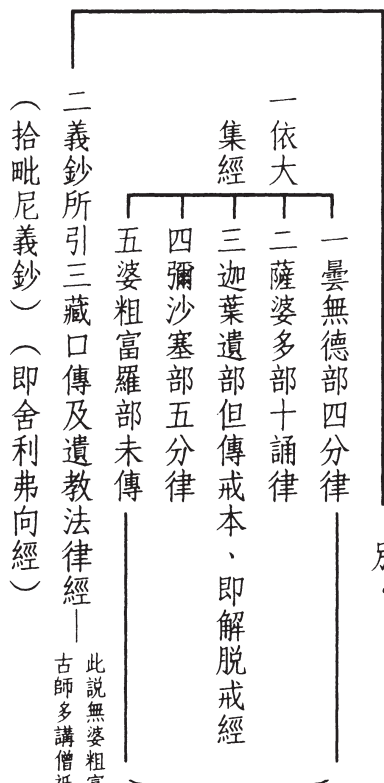 別
一依大
集經
一曇無德部四分律
二薩婆多部十誦律
三迦葉遺部但傳戒本、即解脫戒經
四彌沙塞部五分律
五婆粗富羅部未傳
二義鈔所引三藏口傳及遺教法律經
此說無婆粗富
古師多講僧祇
（拾毗尼義鈔）（即舍利弗向經）